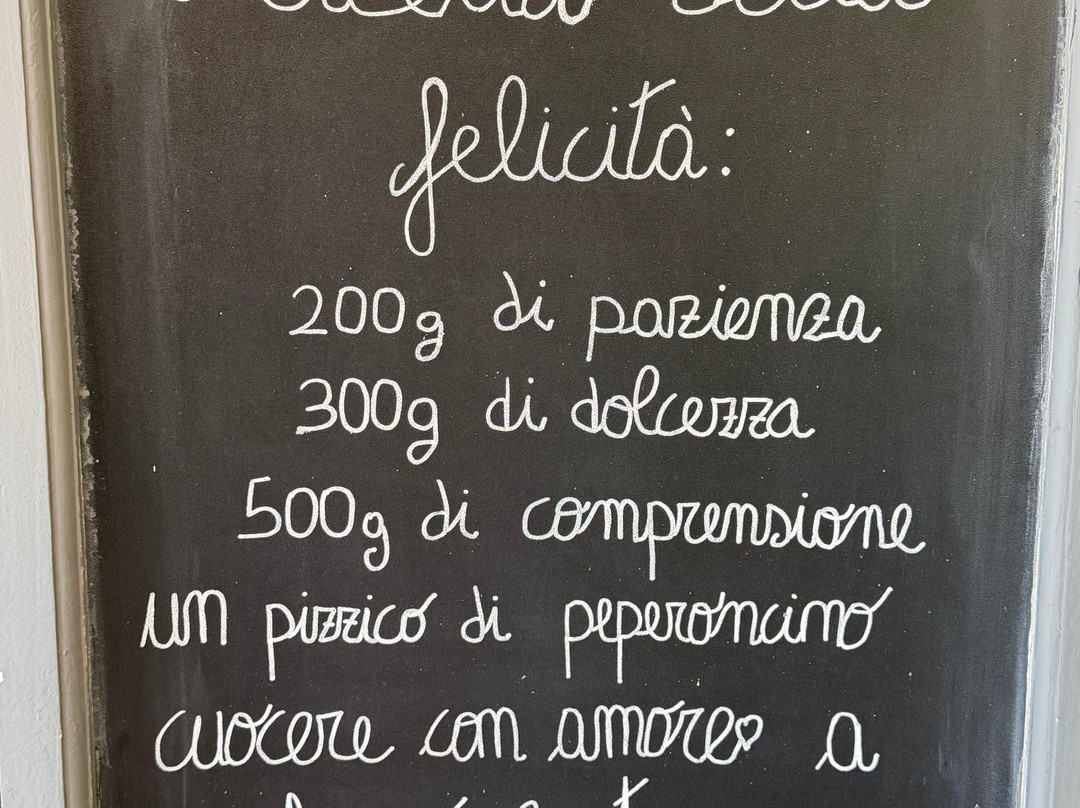 felicità:
200g di pazienza
300g di dolcezza
500g di comprensione
un pizzico di peperoncino
cuocere con amore a